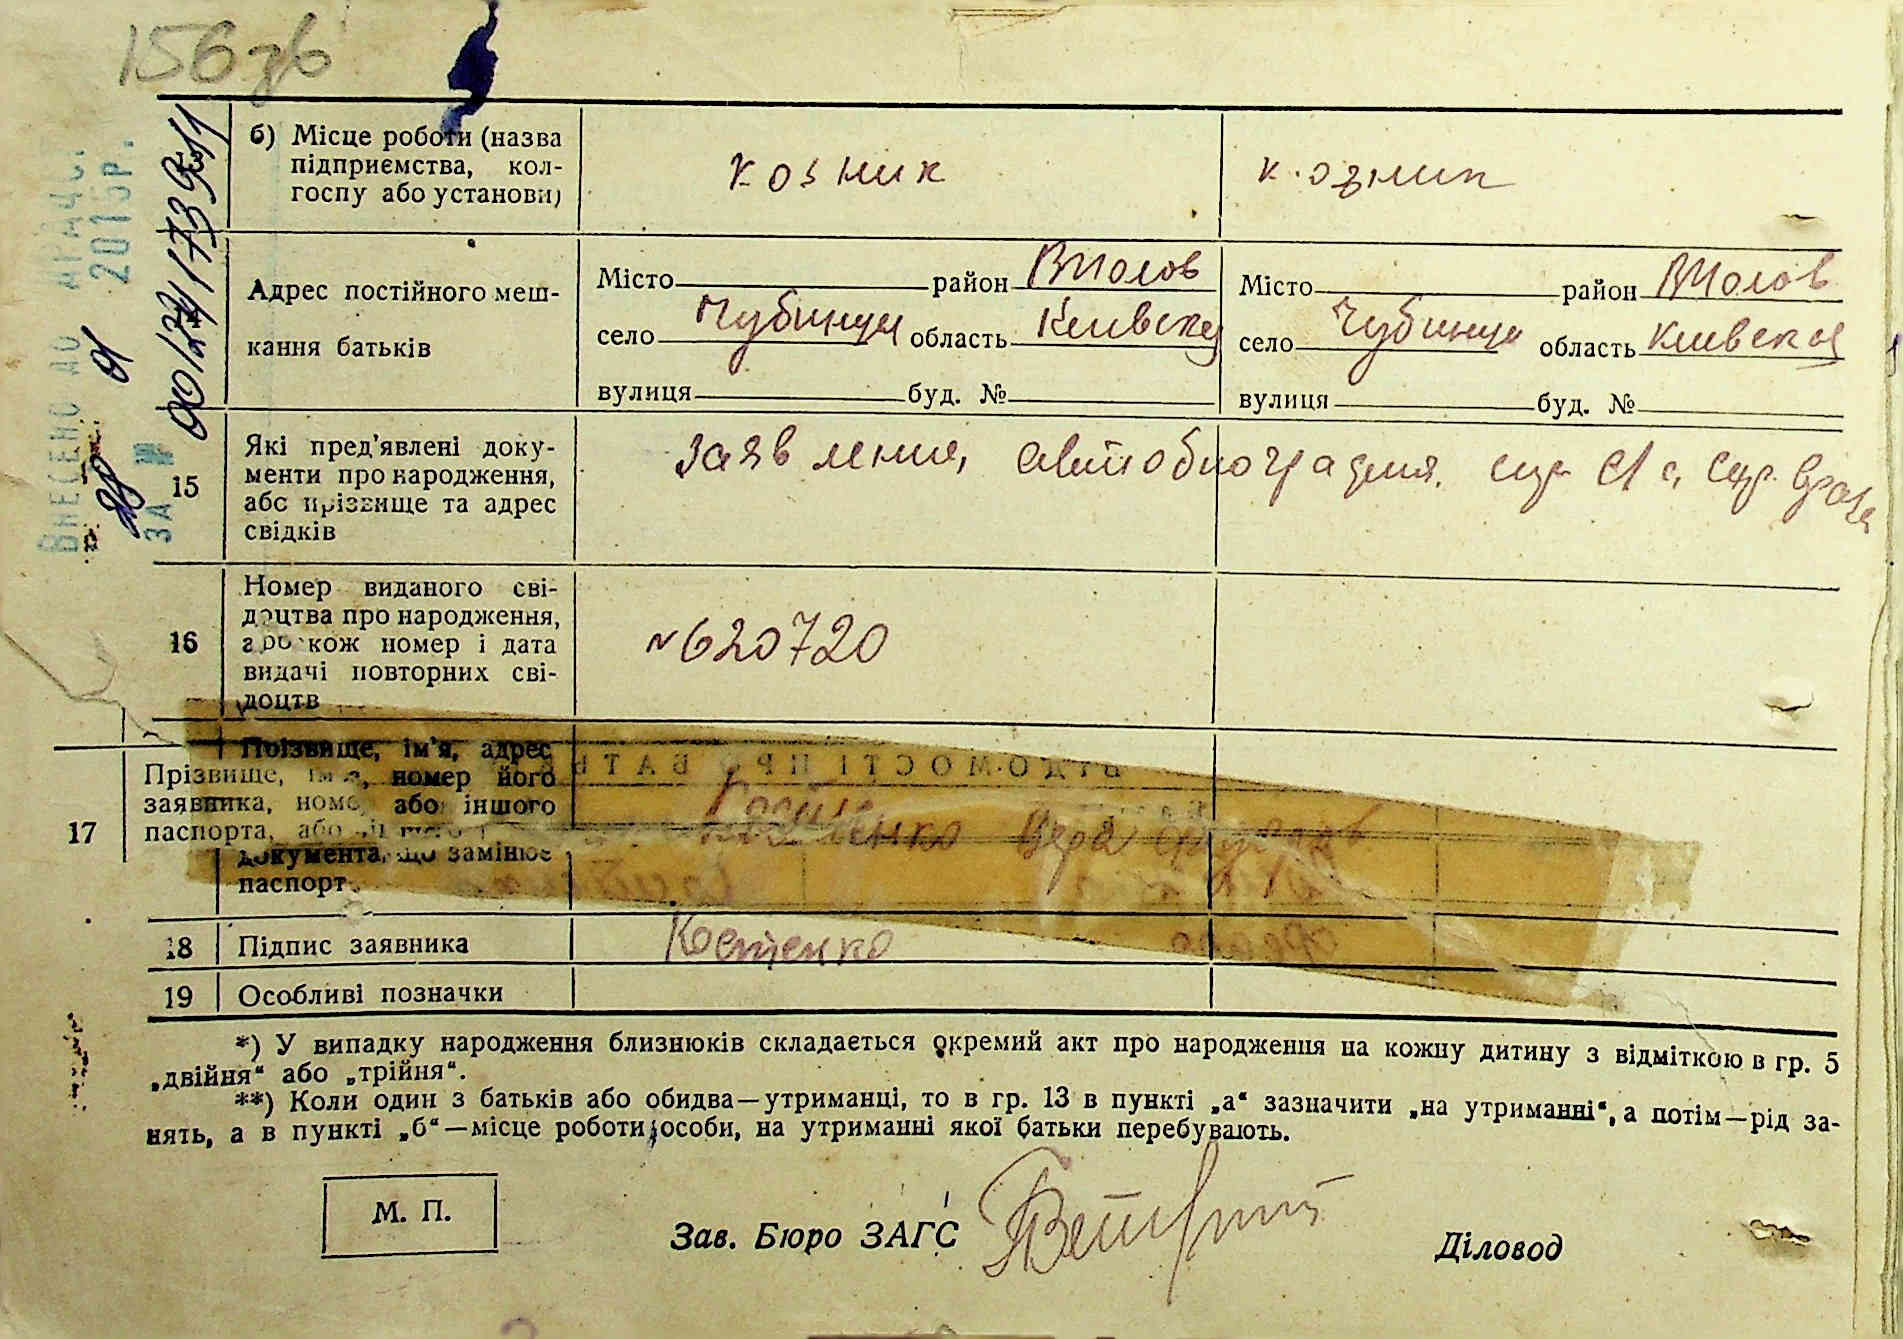 156 зв
ВНЕСЕНО ДО
2015р.
ЗА №
б) Місце роботи (назва
підприємства, кол-
госпу або установи)
Адрес постійного меш-
кання батьків
Місто район
село Чубинци область Киевска
вулиця буд. №
Місто район
село Чубинци область Киевска
вулиця буд. №
15
Які пред'явлені доку-
менти про народження,
або прізвище та адрес
свідків
заявления, автобиография.
16
Номер виданого сві-
доцтва про народження,
також номер і дата
видачі повторних сві-
доцтв
№620720
17
Прізвище, ім'я, адрес
Прізвище, номер його
заявника, або іншого
паспорта, або
документа, що замінює
паспорт
Вера
18 Підпис заявника Костенко
19 Особливі позначки
*) У випадку народження близнюків складається окремий акт про народження на кожну дитину з відміткою в гр. 5
„двійня“ або „трійня“.
**) Коли один з батьків або обидва—утриманці, то в гр. 13 в пункті „а“ зазначити „на утриманні“, а потім—рід за-
нять, а в пункті „б“—місце роботи особи, на утриманні якої батьки перебувають.
М. П.
Зав. Бюро ЗАГС
Діловод